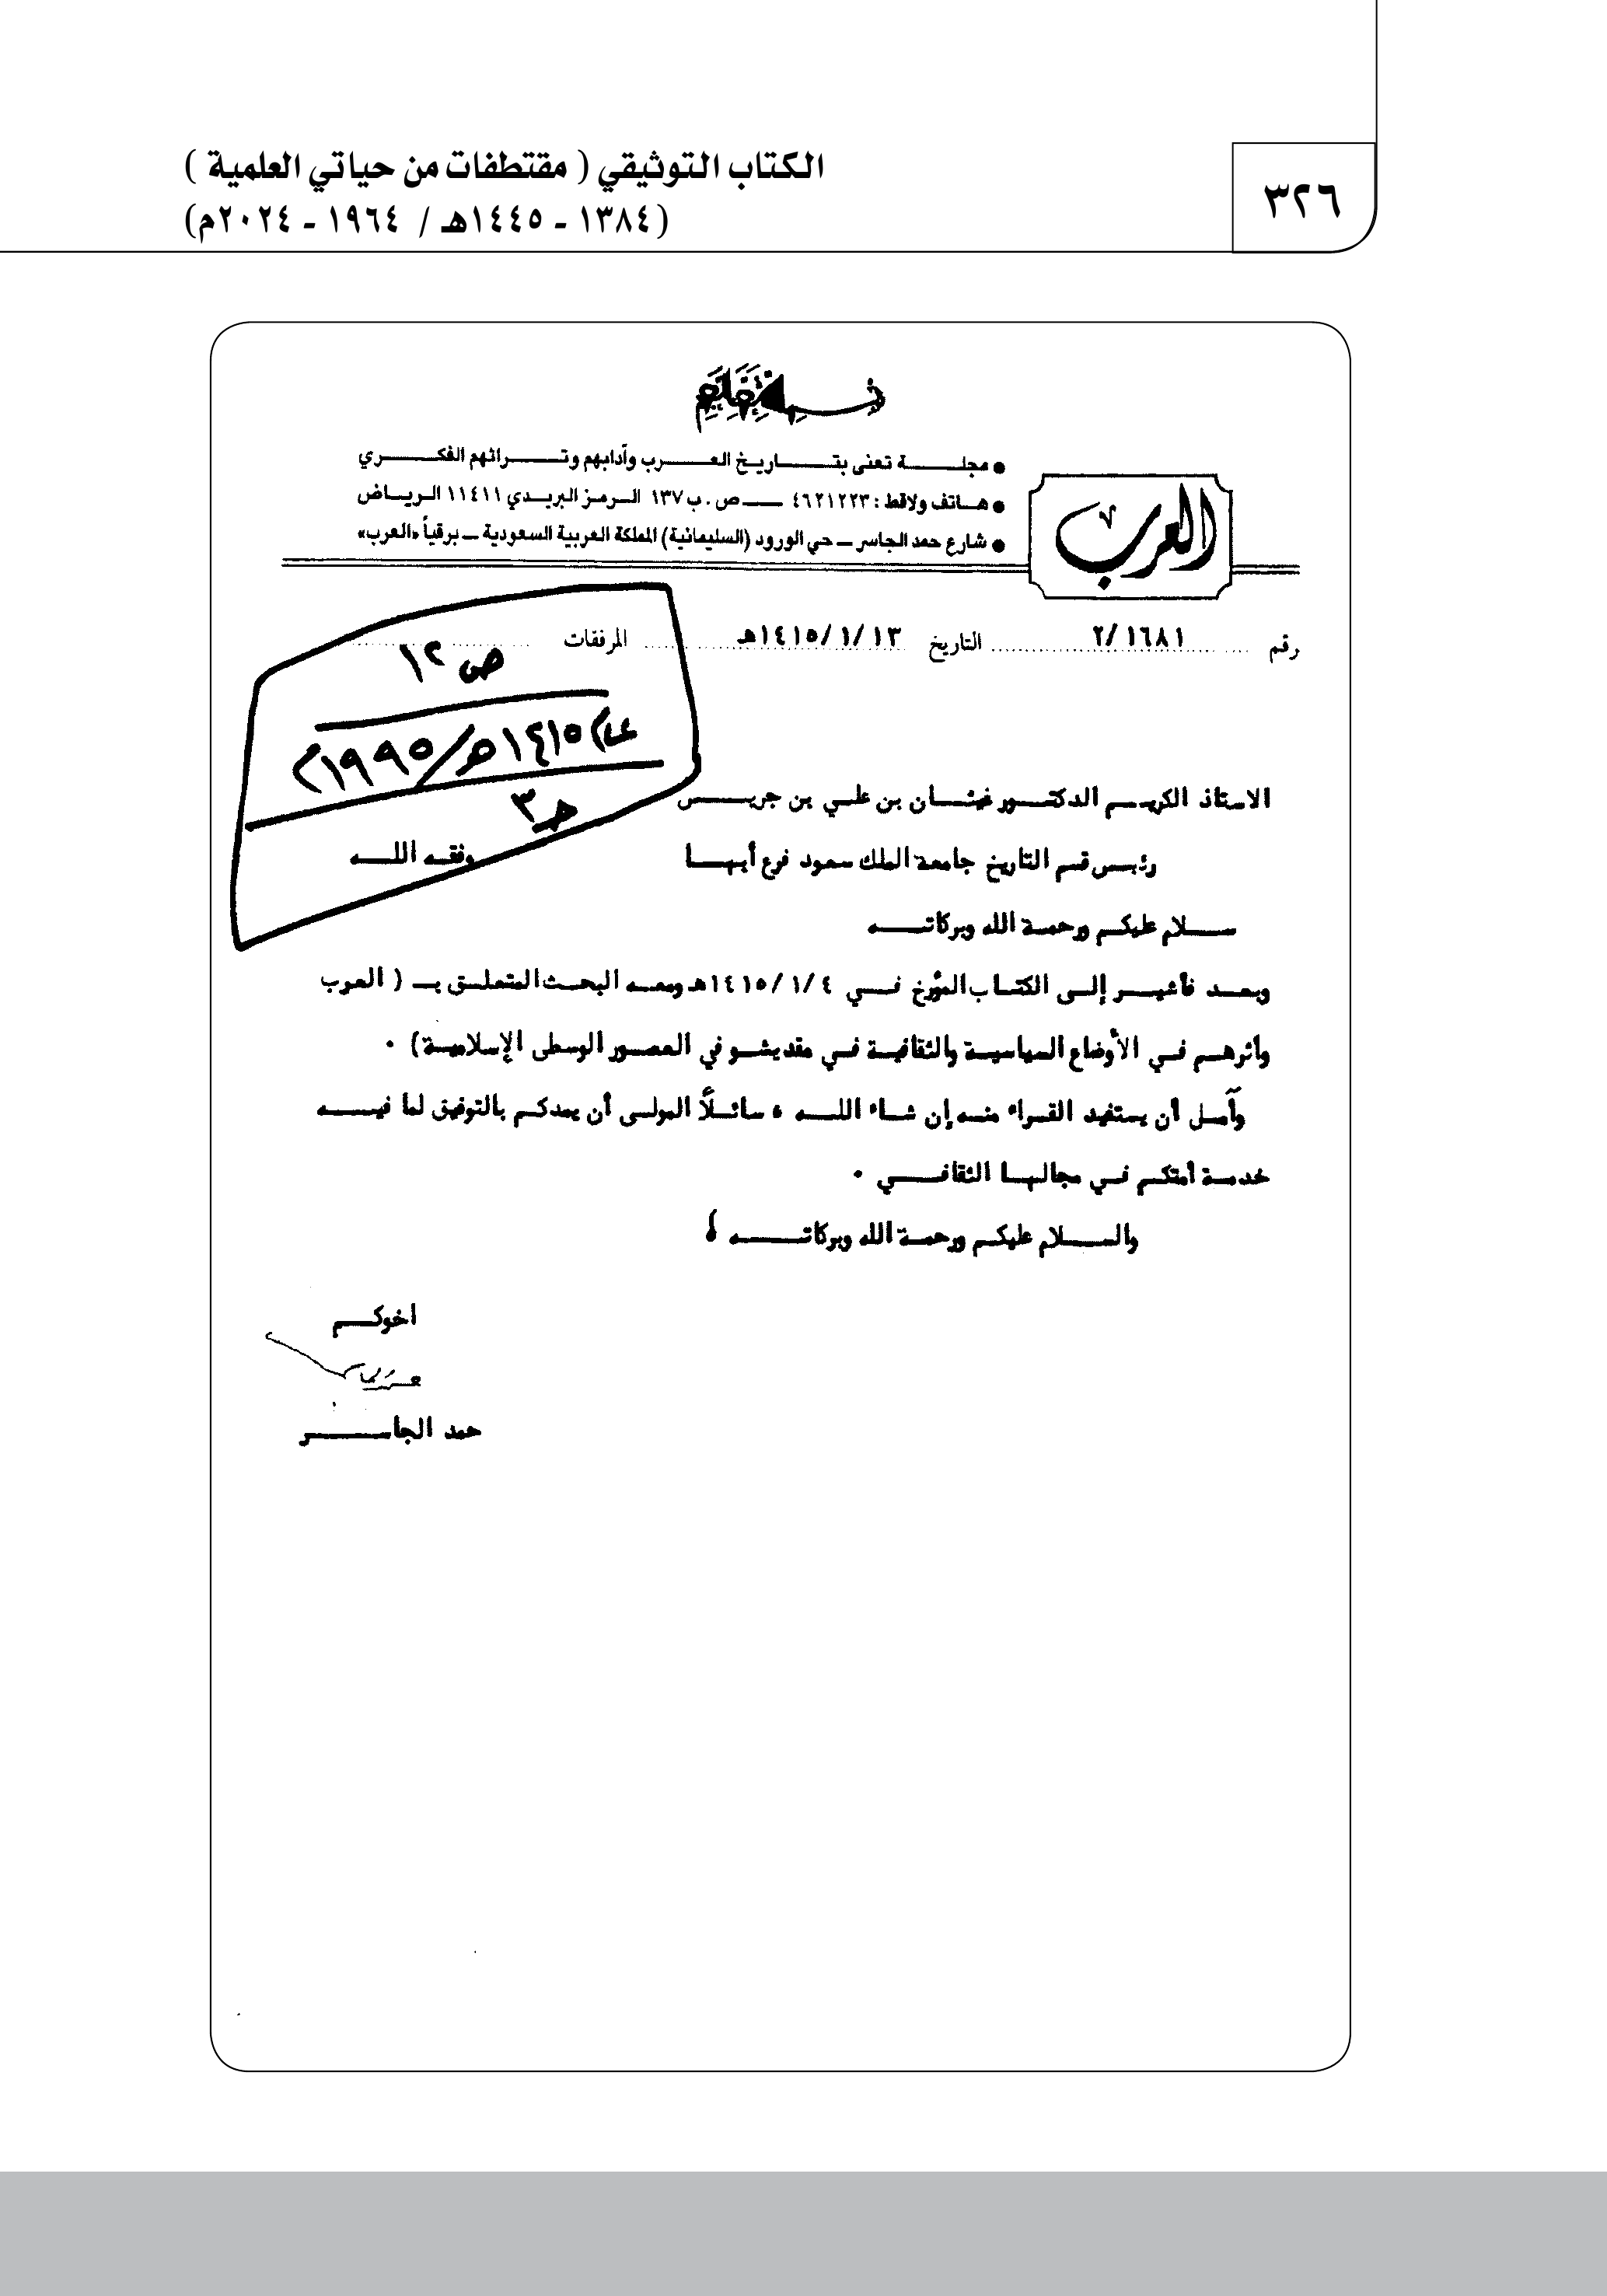 ٣٢٦
الكتاب التوثيقي ( مقتطفات من حياتي العلمية )
(١٣٨٤ - ١٤٤٥هـ / ١٩٦٤ - ٢٠٢٤م)
● مجلـــة تعنى بتـــاريـخ العـــرب وآدابهم وتـــراثهم الفكـــري
● هـاتف ولاقط : ٤٦٢١٢٢٣ ـــ ص . ب ١٣٧ الـرمـز البريـدي ١١٤١١ الريـاض
● شارع حمد الجاسر ـ حي الورود (السليمانية) المملكة العربية السعودية ـ برقياً «العرب»
العرب
رقم ٢/١٦٨١ التاريخ ١٤١٥/١/١٣هـ المرفقات
ص ١٢
عام ١٤١٥هـ/١٩٩٥م
هـ٣
الاستاذ الكريـم الدكتـور غيثـان بن علـي بن جريـس
رئيـس قسم التاريخ جامعة الملك سعود فرع أبهـا وفقـه اللـه
سـلام عليكـم ورحمـة الله وبركاتـه
وبعـد فأشيـر إلـى الكتـاب المؤرخ فـي ١٤١٥/١/٤هـ ومعـه البحـث المتعلـق بـ ( العرب
وأثرهـم فـي الأوضاع السياسيـة والثقافيـة فـي مقديشـو في العصـور الوسطى الإسلاميـة) ٠
وآمـل أن يستفيد القـراء منـه إن شـاء اللـه ، سائـلاً المولـى أن يمدكـم بالتوفيق لما فيـه
خدمـة أمتكـم فـي مجالهـا الثقافـي ٠
والسـلام عليكـم ورحمـة الله وبركاتـه ،
اخوكـم
حمد الجاسـر